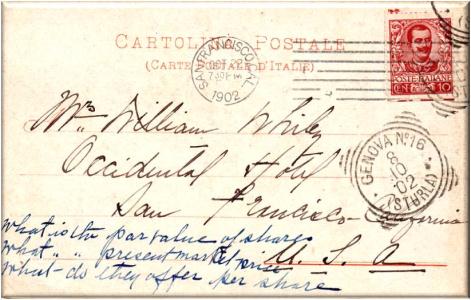 CARTOLINA POSTALE
(CARTE POSTALE D'ITALIE)
SAN FRANCISCO, CAL.
OCT 22
7 30 PM
1902
POSTE ITALIANE
CEN 10
GENOVA Nº 16
8
10
02
(STURLA)
Mrs William
Occidental Hotel
San Francisco - California
U. S. A
what is the par value of shares
what " " present market price
what - do they offer per share